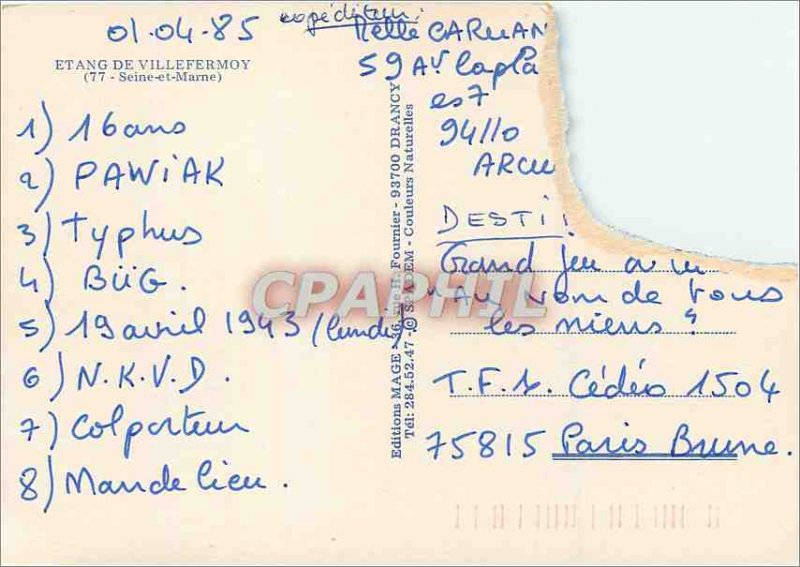 01.04.85
expéditeur:
Melle CARMAN
59 Av. Lapla
es7
94110
ARCU
ETANG DE VILLEFERMOY
(77 - Seine-et-Marne)
1) 16 ans
2) PAWIAK
3) Typhus
4) BÜG.
5) 19 avril 1943 (lundi)
6) N.K.V.D.
7) Colporteur
8) Mandelieu.
Editions MAGE - 36, rue H. Fournier - 93700 DRANCY
Tél: 284.52.47 - © SPADEM - Couleurs Naturelles
DESTI
Grand Jeu
"Au nom de tous
les miens"
T.F.1. Cédéo 1504
75815 Paris Brune.
CPARAPHIL